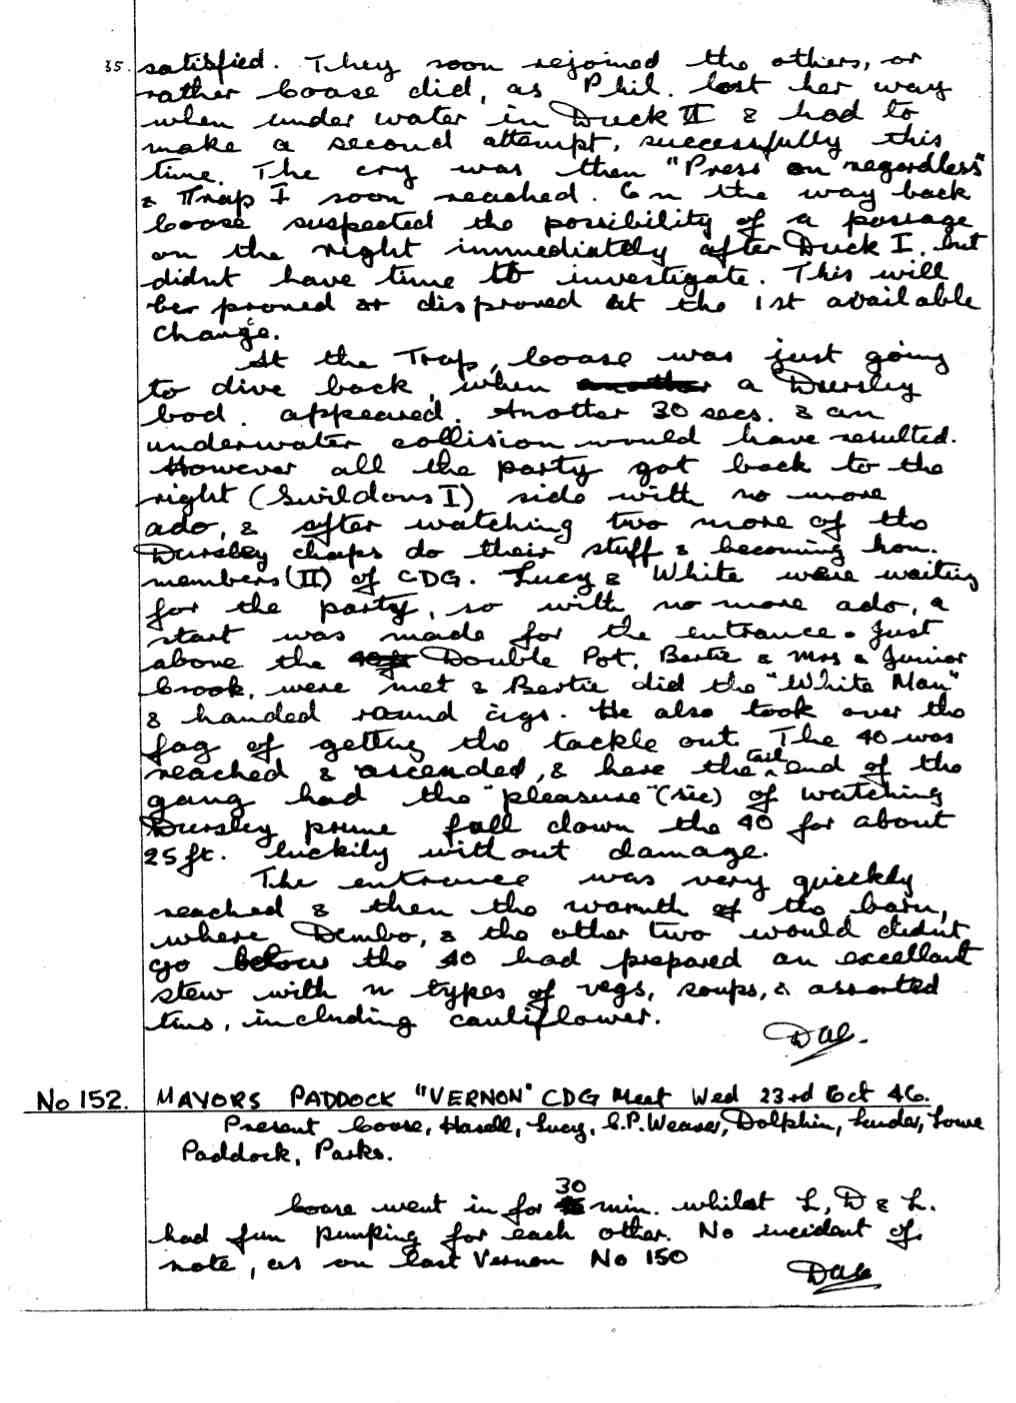 35. satisfied. They soon rejoined the others, or
rather Coase did, as Phil. lost her way
when under water in Duck II & had to
make a second attempt, successfully this
time. The cry was then "Press on regardless"
& Trap I soon reached. On the way back
Coase suspected the possibility of a passage
on the right immediately after Duck I, but
didnt have time to investigate. This will
be proved or disproved at the 1st available
change.
At the Trap, Coase was just going
to dive back, when a Dursley
bod. appeared. Another 30 secs. & an
underwater collision would have resulted.
However all the party got back to the
right (Swildons I) side with no more
ado, & after watching two more of the
Dursley chaps do their stuff & becoming hon.
members (II) of CDG. Lucy & White were waiting
for the party, so with no more ado, a
start was made for the entrance. Just
above the Double Pot, Bertie & Mrs & Junior
Crook, were met & Bertie did the "White Man"
& handed round cigs. He also took over the
fag of getting the tackle out. The 40 was
reached & ascended, & here the tail end of the
gang had the "pleasure" (sic) of watching
Dursley prune fall down the 40 for about
25 ft. luckily without damage.
The entrance was very quickly
reached & then the warmth of the barn,
where Dimbo, & the other two would didnt
go below the 40 had prepared an excellent
stew with n types of vegs, soups, & assorted
tins, including cauliflower.
DAC.
No 152. MAYORS PADDOCK "VERNON" CDG Meet Wed 23rd Oct 46.
Present Coase, Hasell, Lucy, C.P. Weaver, Dolphin, Lowe
Paddock, Parks.
Coase went in for 30 min. whilst L, D & L.
had fun pumping for each other. No incident of
note, as on last Vernon No 150
DAC